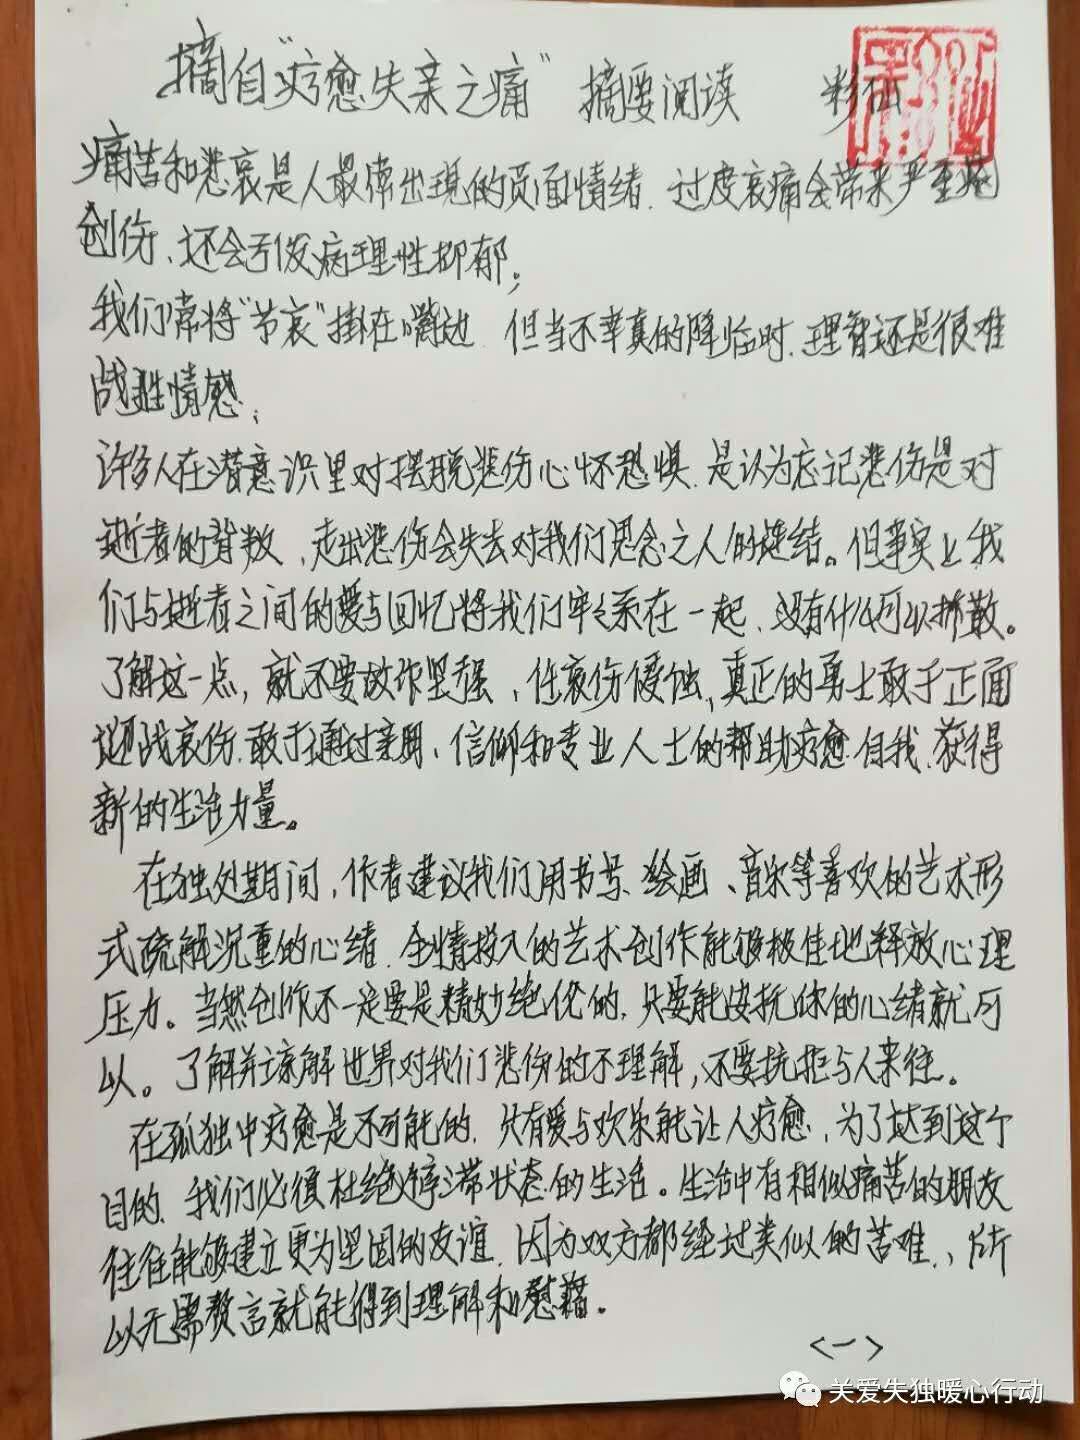 摘自"疗愈失亲之痛" 摘要阅读 彩仙
痛苦和悲哀是人最常出现的负面情绪.过度哀痛会带来严重的
创伤、还会引发病理性抑郁;
我们常将"节哀"掛在嘴边 但当不幸真的降临时.理智还是很难
战胜情感;
许多人在潜意识里对摆脱悲伤心怀恐惧.是认为忘记悲伤是对
逝者的背叛,走出悲伤会失去对我们思念之人的连结。但事实上我
们与逝者之间的爱与回忆将我们牢牢系在一起、没有什么可以拆散。
了解这一点,就不要故作坚强、任哀伤侵蚀、真正的勇士敢于正面
迎战哀伤.敢于通过亲朋、信仰和专业人士的帮助疗愈自我.获得
新的生活力量。
在独处期间,作者建议我们用书写、绘画、音乐等喜欢的艺术形
式疏解沉重的心绪.全情投入的艺术创作能够极佳地释放心理
压力。当然创作不一定要是精妙绝伦的,只要能安抚你的心绪就可
以。了解并谅解世界对我们悲伤的不理解,不要抗拒与人来往。
在孤独中疗愈是不可能的.只有爱与欢乐能让人疗愈,为了达到这个
目的.我们必须杜绝停滞状态的生活。生活中有相似痛苦的朋友
往往能够建立更为坚固的友谊.因为双方都经过类似的苦难、所
以无需赘言就能得到理解和慰藉。
<一>
关爱失独暖心行动